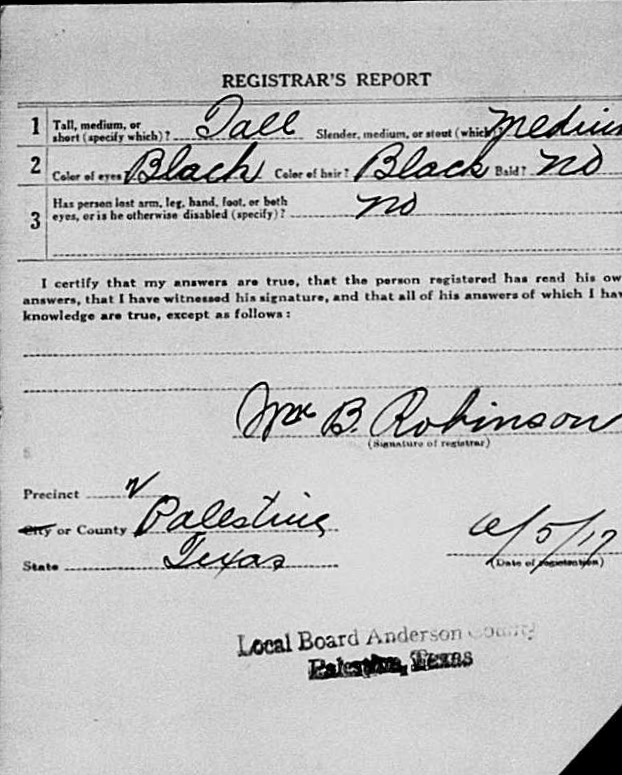 REGISTRAR'S REPORT
1 Tall, medium, or short (specify which)? Tall Slender, medium, or stout (which)? Medium
2 Color of eyes Black Color of hair? Black Bald? No
3 Has person lost arm, leg, hand, foot, or both
eyes, or is he otherwise disabled (specify)? No
I certify that my answers are true, that the person registered has read his ow
answers, that I have witnessed his signature, and that all of his answers of which I hav
knowledge are true, except as follows:
Wm B. Robinson
(Signature of registrar)
Precinct
City or County Palestine
State Texas
6/5/17
(Date of registration)
Local Board Anderson County
Palestine, Texas